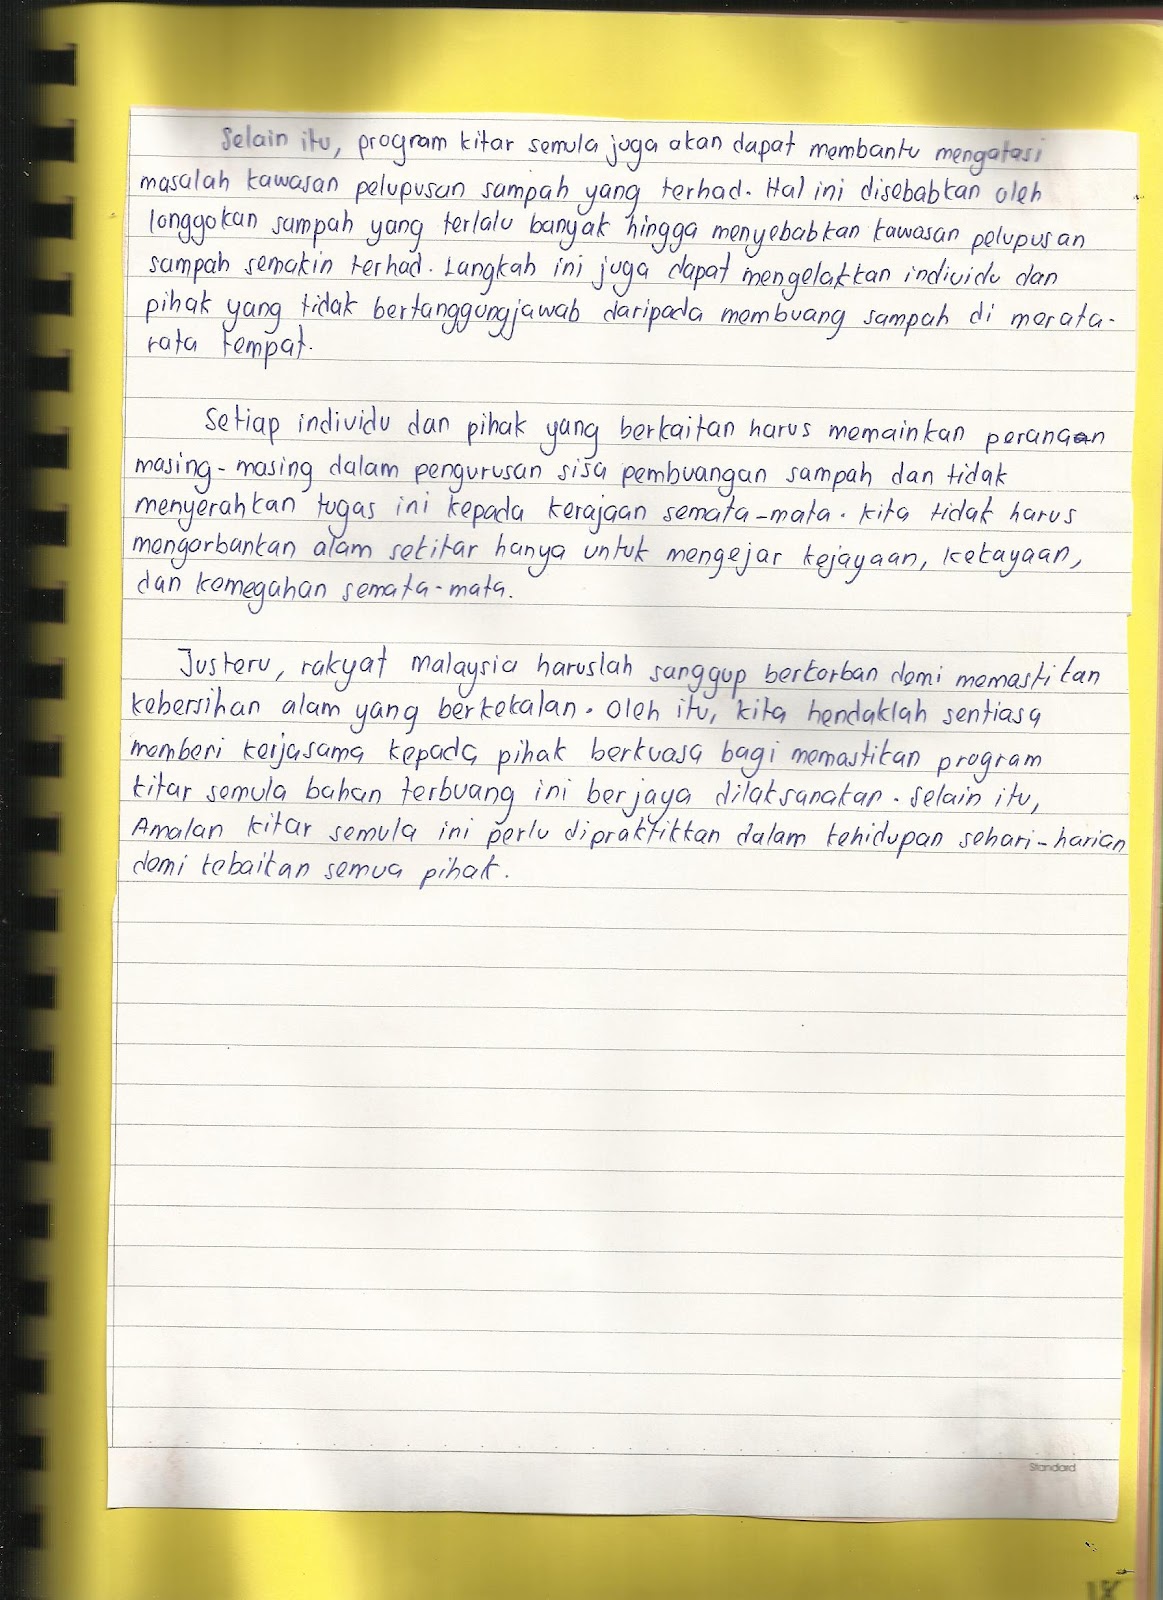 Selain itu, program kitar semula juga akan dapat membantu mengatasi
masalah kawasan pelupusan sampah yang terhad. Hal ini disebabkan oleh
longgokan sampah yang terlalu banyak hingga menyebabkan kawasan pelupusan
sampah semakin terhad. Langkah ini juga dapat mengelakkan individu dan
pihak yang tidak bertanggungjawab daripada membuang sampah di merata-
rata tempat.
Setiap individu dan pihak yang berkaitan harus memainkan peranan
masing-masing dalam pengurusan sisa pembuangan sampah dan tidak
menyerahkan tugas ini kepada kerajaan semata-mata. Kita tidak harus
mengorbankan alam sekitar hanya untuk mengejar kejayaan, kekayaan,
dan kemegahan semata-mata.
Justeru, rakyat malaysia haruslah sanggup berkorban demi memastikan
kebersihan alam yang berkekalan. Oleh itu, kita hendaklah sentiasa
memberi kerjasama kepada pihak berkuasa bagi memastikan program
kitar semula bahan terbuang ini berjaya dilaksanakan. Selain itu,
Amalan kitar semula ini perlu dipraktikkan dalam kehidupan sehari-harian
demi kebaikan semua pihak.
Standard